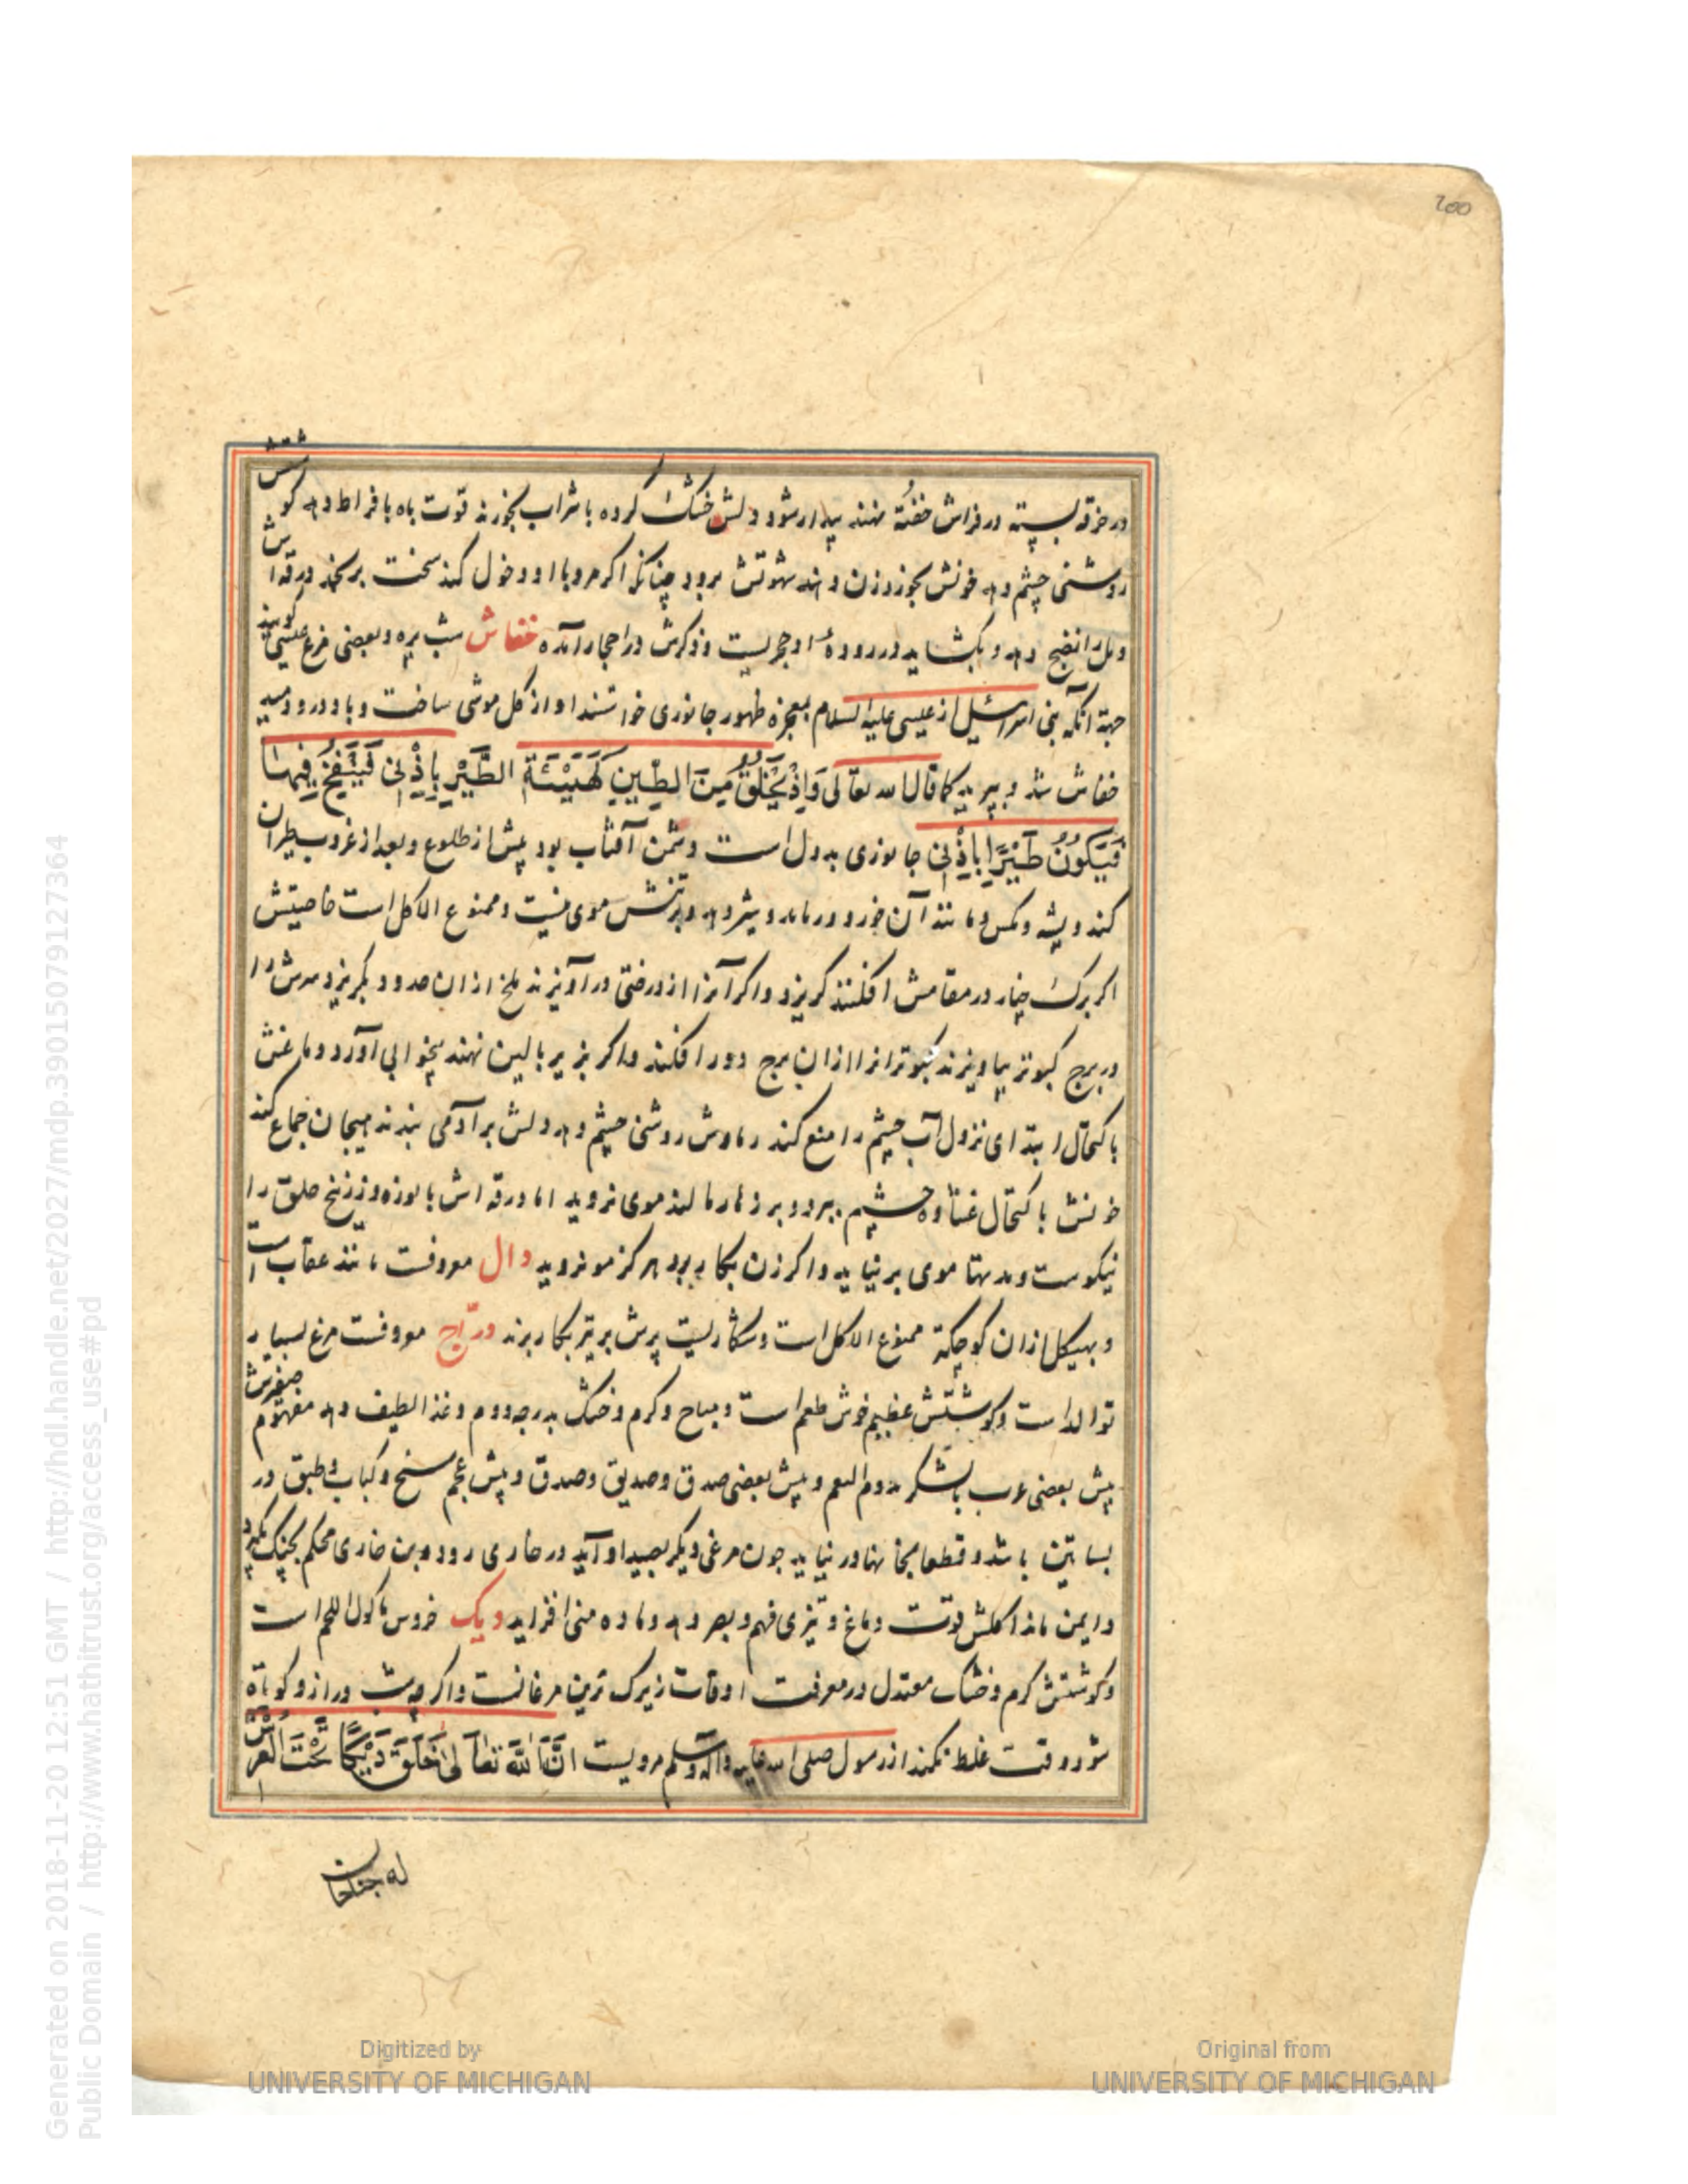 200
در خرقه بسته در فراش خفته نهند بیدار شود دلش خشک کرده با شراب بخورند قوت باه بافراط دهد کوشتش
روشنی چشم دهد خونش بخورد زن دهند شهوتش برود چنانکه اکر مرد با او دخول کند سخت برنجد ورقه اش
دمل را نضج دهد و بکشاید در روده او حجریست و ذکرش در احجار آمده خفاش شب پره و بعضی مرغ عیسی کویند
جهة آنکه بنی اسرائیل از عیسی علیه السلام بمعجزه ظهور جانوری خواستند او از کل موشی ساخت و باد درو دمید
خفاش شد و بپرید کما قال الله تعالی وَاِذْ تَخْلُقُ مِنَ الطِّينِ كَهَيْئَةِ الطَّيْرِ بِاِذْنِی فَتَنْفُخُ فِيهَا
فَتَكُونُ طَيْرًا بِاِذْنِی جانوری بددل است دشمن آفتاب بود پیش از طلوع و بعد از غروب طیران
کند و پشه و مکس و مانند آن خورد و در ماده و شیر دهد و بر تنش موی نیست و ممنوع الاکل است خاصیتش
اکر برک چنار در مقامش افکنند کریزد و اکر آنرا از درختی در آویزند ملخ از ان حدود بکریزد سرش را
در برج کبوتر بیاویزند کبوترانرا ازان برج دور افکند و اکر بزیر بالین نهند بیخوابی آورد دماغش
باکتحال ابتدای نزول آب چشم را منع کند رمادش روشنی چشم دهد دلش بر آدمی بندند هیجان جماع کند
خونش باکتحال غشاوه چشم ببرد و بر زهار مالند موی نروید اما ورقه اش با نوره و زرنیخ حلق را
نیکوست و مدتها موی برنیاید و اکر زن بکار برد هرکز مو نروید دال معروفست مانند عقاب است
و بهیکل ازان کوچکتر ممنوع الاکل است و شکاریست پرش بر تیر بکار برند درّاج معروفست مرغ بسیار
توالد است و کوشتش عظیم خوش طعم است و مباح و کرم و خشک بدرجه دوم و غذا لطیف دهد مفهوم صفیرش
پیش بعضی عرب بالشکر تدوم النعم و پیش بعضی صدق و صدیق و صدق و پیش عجم سیخ و کباب و طبق در
بساتین باشد و قطعا بخانها در نیاید چون مرغی دیکر بصید او آید در خاری رود و بن خاری محکم بچنک بکیرد
و ایمن ماند اکلش قوت دماغ و تیزی فهم و بصر دهد و ماده منی افزاید دیک خروس ماکول اللحم است
و کوشتش کرم و خشک معتدل در معرفت اوقات زیرک ترین مرغانست و اکر چه شب دراز و کوتاه
شود وقت غلط نکند از رسول صلی الله علیه وآله وسلم مرویست اِنَّ اللهَ تَعَالٰی خَلَقَ دِیْکًا تَحْتَ الْعَرْشِ
له جناحان
Generated on 2018-11-20 12:51 GMT / http://hdl.handle.net/2027/mdp.39015079127364
Public Domain / http://www.hathitrust.org/access_use#pd
Digitized by
UNIVERSITY OF MICHIGAN
Original from
UNIVERSITY OF MICHIGAN